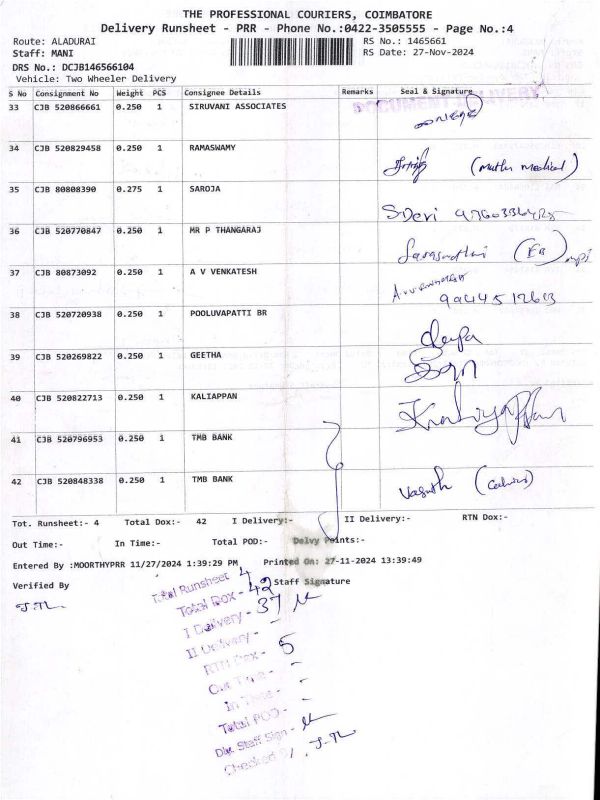 THE PROFESSIONAL COURIERS, COIMBATORE
Delivery Runsheet - PRR - Phone No.:0422-3505555 - Page No.:4
Route: ALADURAI RS No.: 1465661
Staff: MANI RS Date: 27-Nov-2024
DRS No.: DCJB146566104
Vehicle: Two Wheeler Delivery
S No Consignment No Weight PCS Consignee Details Remarks Seal & Signature
33 CJB 520866661 0.250 1 SIRUVANI ASSOCIATES
34 CJB 520829458 0.250 1 RAMASWAMY (Muthu Medical)
35 CJB 80808390 0.275 1 SAROJA S.Devi
36 CJB 520770847 0.250 1 MR P THANGARAJ (EB)
37 CJB 80873092 0.250 1 A V VENKATESH
38 CJB 520720938 0.250 1 POOLUVAPATTI BR
39 CJB 520269822 0.250 1 GEETHA
40 CJB 520822713 0.250 1 KALIAPPAN
41 CJB 520796953 0.250 1 TMB BANK
42 CJB 520848338 0.250 1 TMB BANK
Tot. Runsheet:- 4 Total Dox:- 42 I Delivery:- II Delivery:- RTN Dox:-
Out Time:- In Time:- Total POD:- Delvy Points:-
Entered By :MOORTHYPRR 11/27/2024 1:39:29 PM Printed On: 27-11-2024 13:39:49
Verified By Staff Signature
Total Runsheet 4
Total Dox - 42
I Delivery - 37
II Delivery - -
RTN Dox - 5
Out Time - -
In Time - -
Total POD - -
Div. Staff Sign -
Checked By